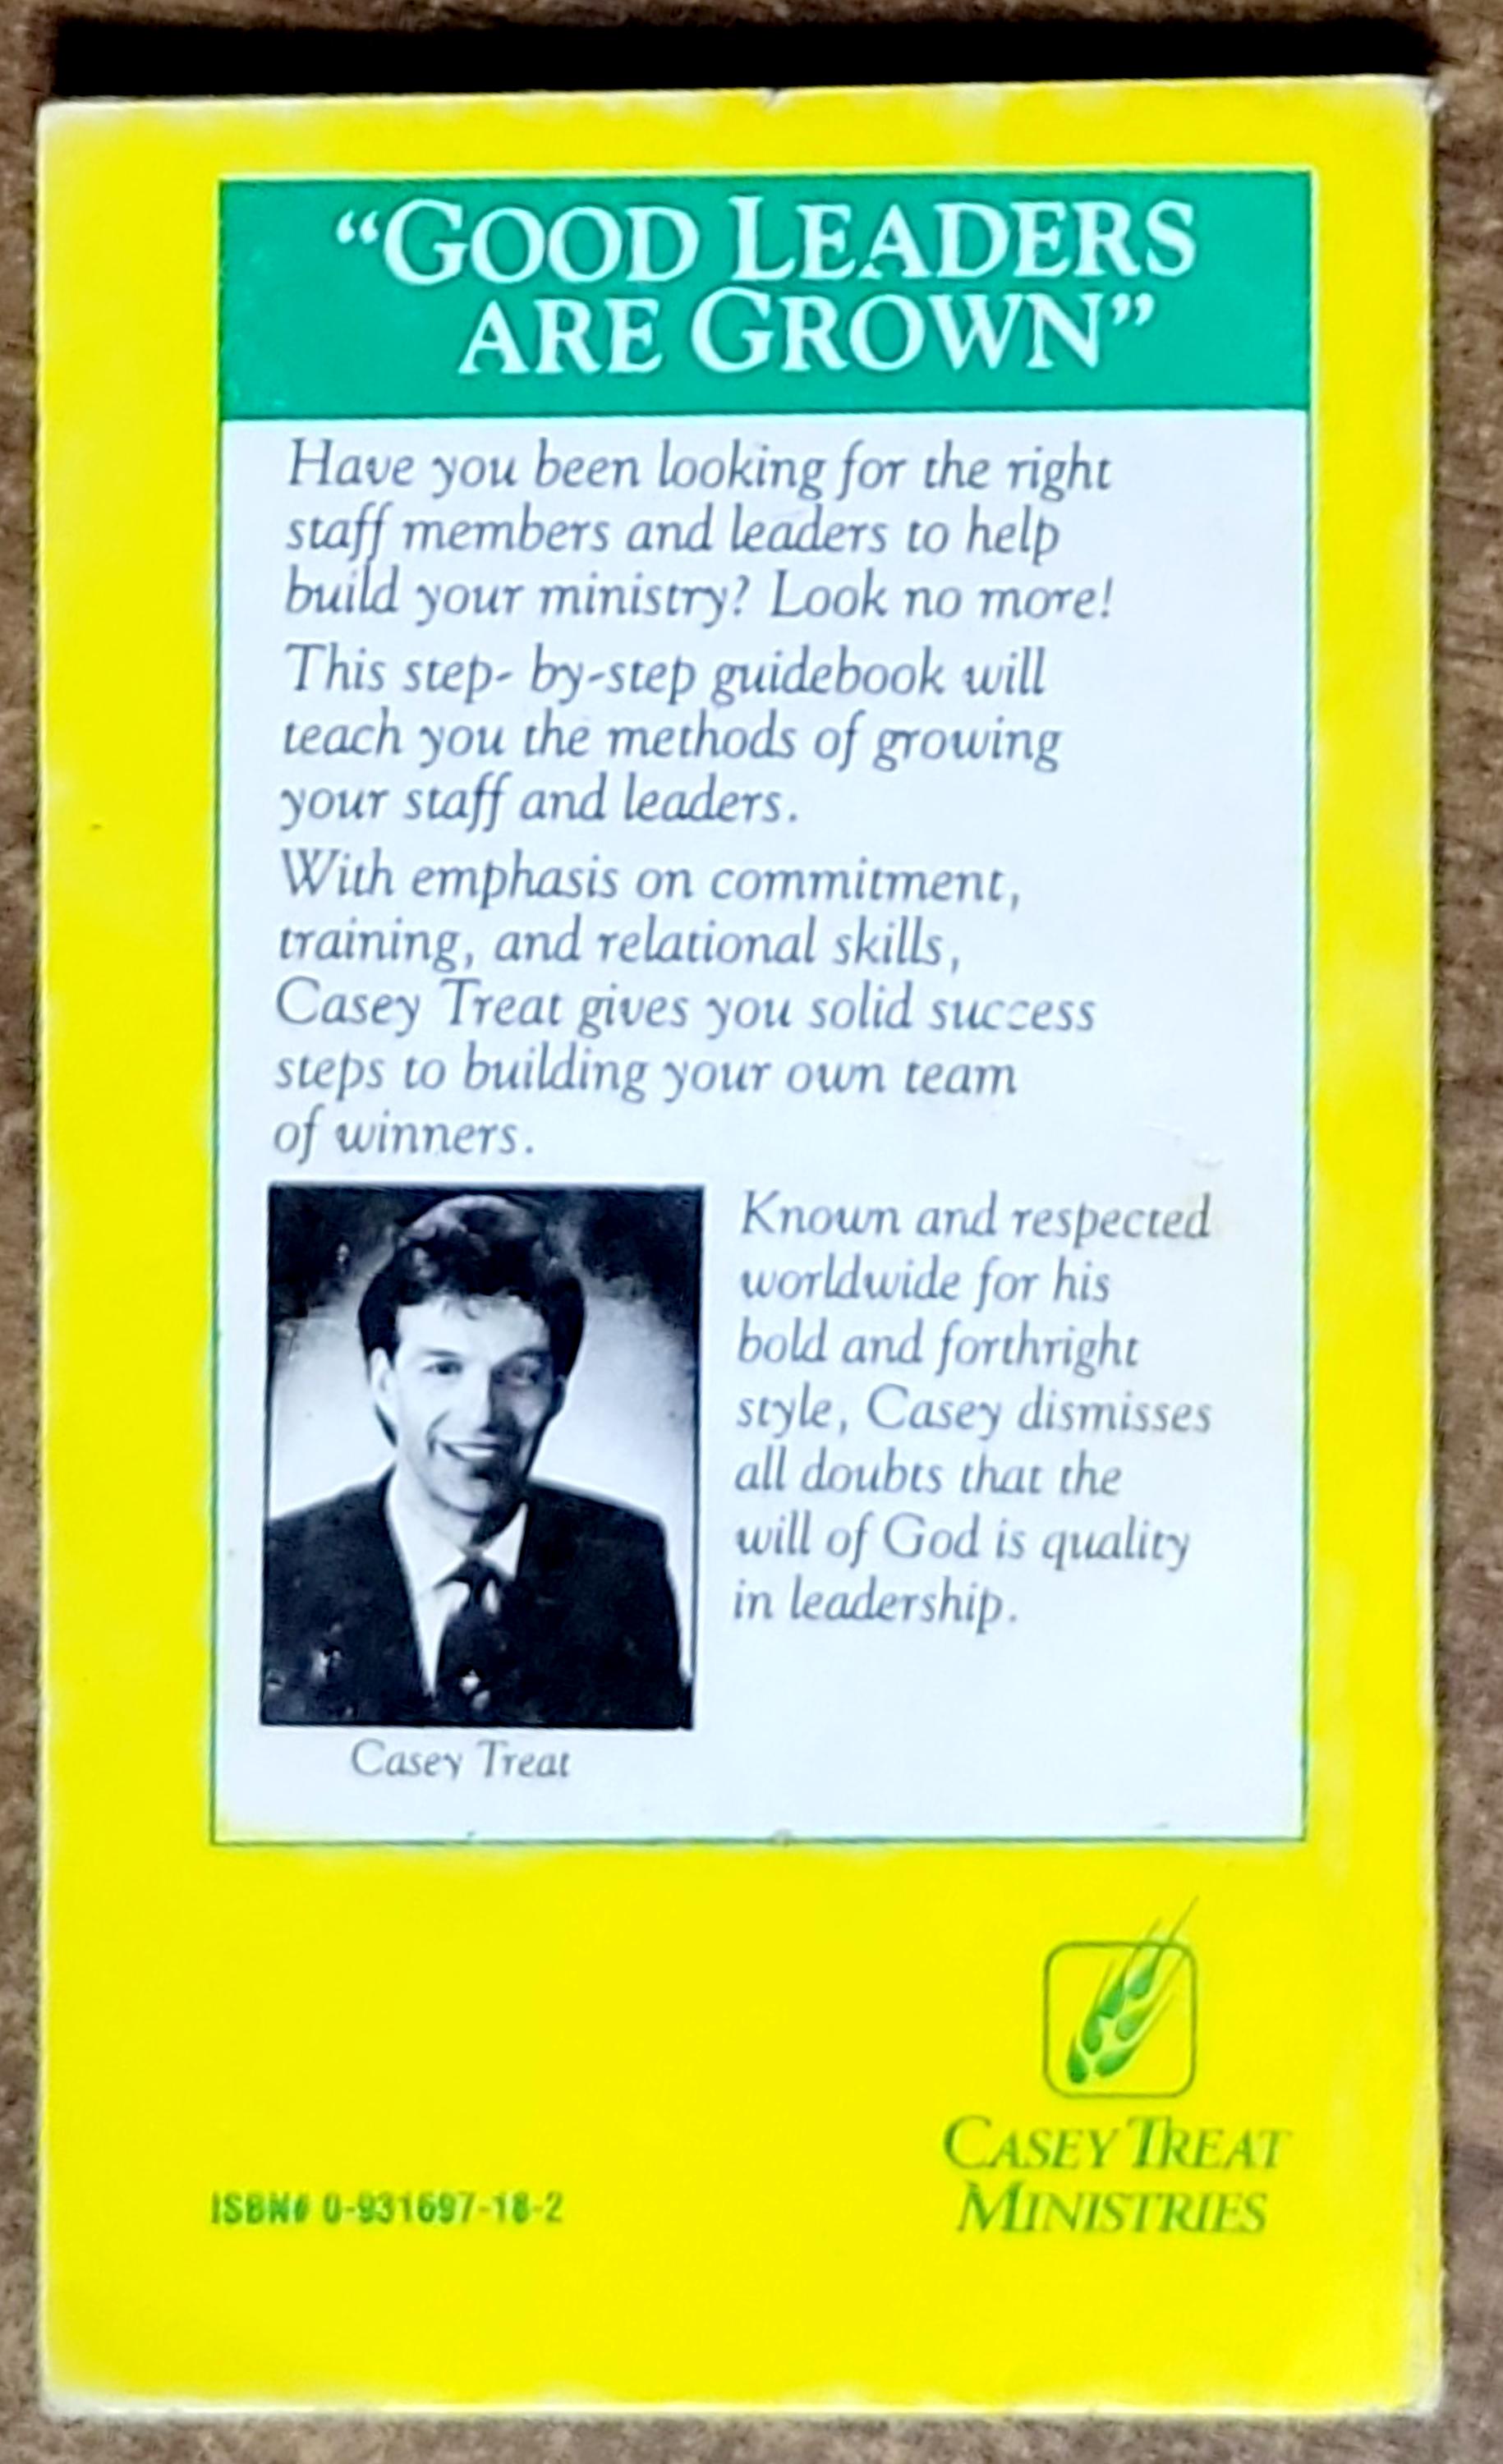 “GOOD LEADERS
ARE GROWN”
Have you been looking for the right
staff members and leaders to help
build your ministry? Look no more!
This step- by-step guidebook will
teach you the methods of growing
your staff and leaders.
With emphasis on commitment,
training, and relational skills,
Casey Treat gives you solid success
steps to building your own team
of winners.
Known and respected
worldwide for his
bold and forthright
style, Casey dismisses
all doubts that the
will of God is quality
in leadership.
Casey Treat
CASEY TREAT
MINISTRIES
ISBN# 0-931697-18-2